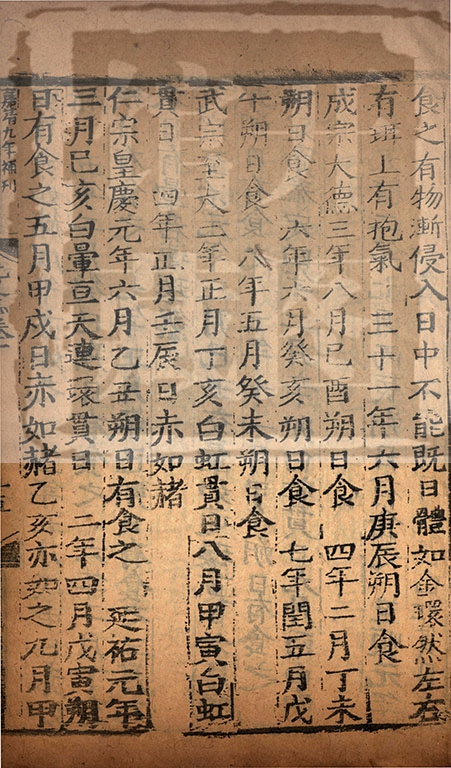 食之有物漸侵入日中不能既日體如金環然左右
有珥上有抱氣 三十一年六月庚辰朔日食
成宗大德三年八月己酉朔日食 四年二月丁未
朔日食 六年六月癸亥朔日食 七年閏五月戊
午朔日食 八年五月癸未朔日食
武宗至大二年正月丁亥白虹貫日八月甲寅白虹
貫日 四年正月壬辰日赤如赭
仁宗皇慶元年六月乙丑朔日有食之 延祐元年
三月己亥白暈亘天連環貫日 二年四月戊寅朔
日有食之五月甲戌日赤如赭乙亥亦如之九月甲
嘉靖九年補刊